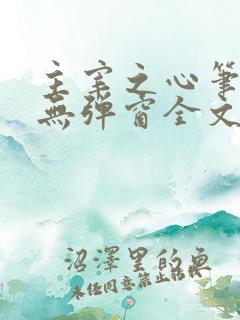 主宰之心筆
無彈窗全文
沼澤里的魚
未經同意禁止轉載